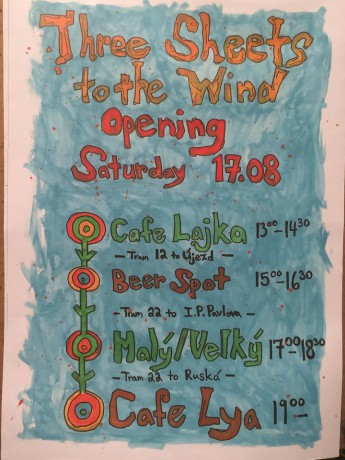 Three Sheets
to the Wind
Opening
Saturday 17.08
Cafe Lajka 13⁰⁰-14³⁰
- Tram 12 to Újezd -
Beer Spot 15⁰⁰-16³⁰
- Tram 22 to I.P. Pavlova -
Malý/Veľký 17⁰⁰-18³⁰
- Tram 22 to Ruská -
Cafe Lya 19⁰⁰